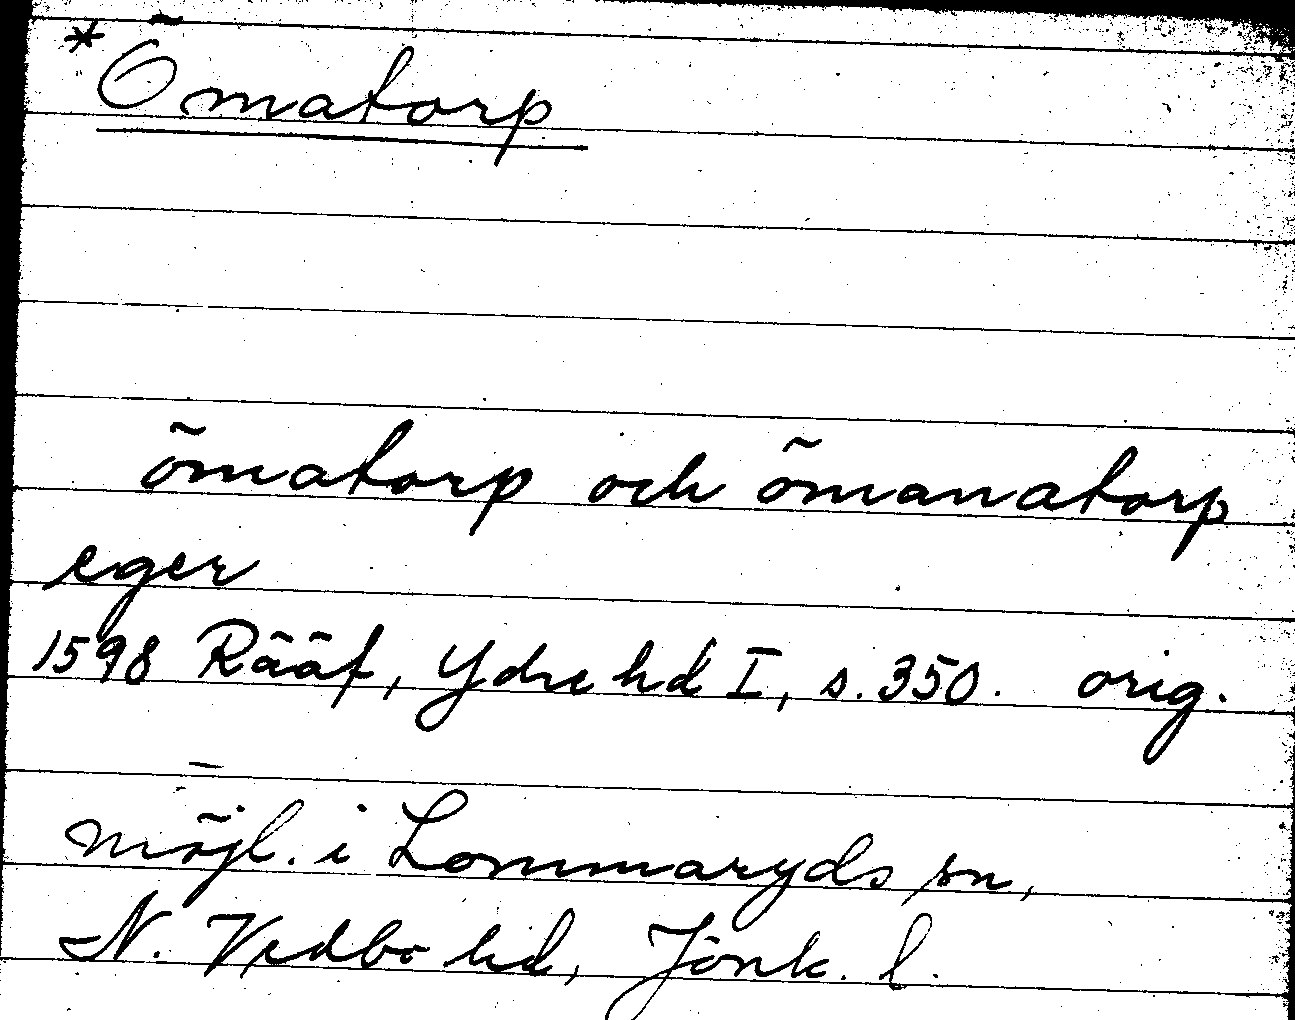 *Ömatorp
ömatorp och ömanatorp
eger
1598 Rääf, Ydre hd I, s. 350. orig.
möjl. i Lommaryds sn,
N. Vedbo hd, Jönk. l.